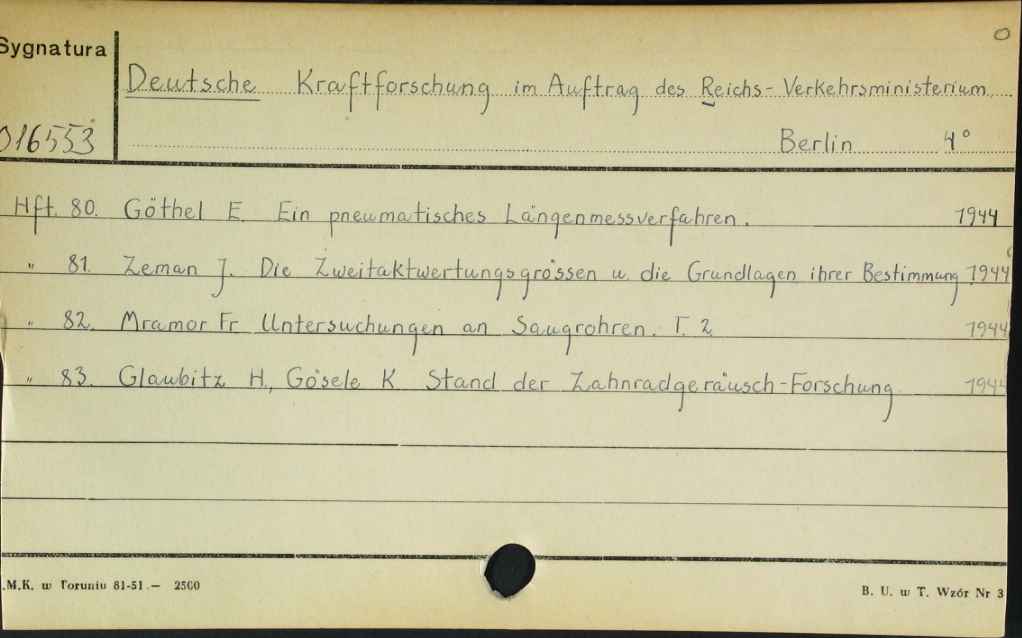 O
Sygnatura
Deutsche Kraftforschung im Auftrag des Reichs-Verkehrsministerium
016553 Berlin 4°
Hft. 80. Göthel E. Ein pneumatisches Längenmessverfahren. 1944
" 81. Zeman J. Die Zweitaktwertungsgrössen u. die Grundlagen ihrer Bestimmung 1944
" 82. Mramor Fr. Untersuchungen an Saugrohren. T. 2 1944
" 83. Glaubitz H., Gösele K. Stand der Zahnradgeräusch-Forschung 1944
.M.K. w Toruniu 81-51.— 2500 B. U. w T. Wzór Nr 3